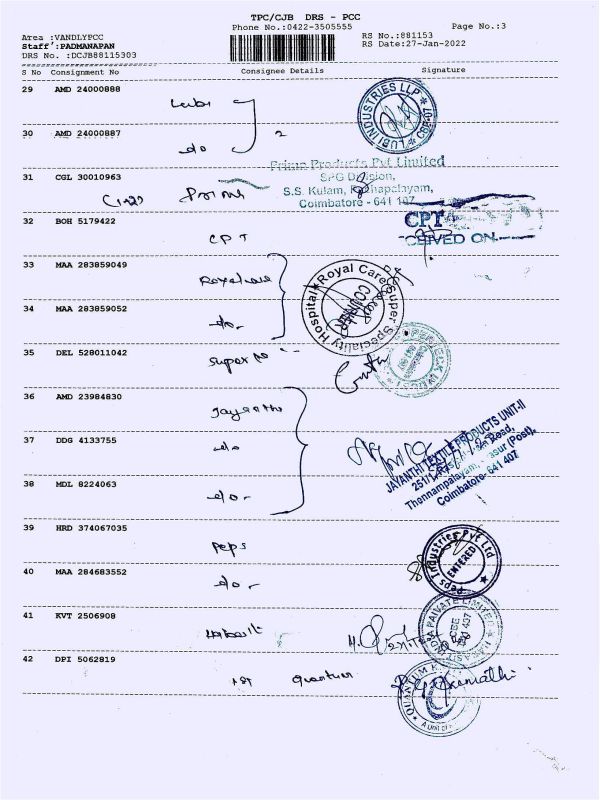 TPC/CJB DRS - PCC
Phone No.:0422-3505555
Page No.:3
Area :VANDLYPCC
RS No.:881153
Staff :PADMANAPAN
RS Date:27-Jan-2022
DRS No. :DCJB88115303
S No Consignment No Consignee Details Signature
29 AMD 24000888
Lubi
LUBI INDUSTRIES LLP
30 AMD 24000887
do 2
31 CGL 30010963
Prime Products Pvt Limited
SPG Division,
S.S. Kulam,
Coimbatore - 641 107
Prime
32 BOH 5179422
CPT
CPT
CEIVED ON
33 MAA 283859049
Royal care
Royal Care Super Speciality Hospital
34 MAA 283859052
do-
35 DEL 528011042
Super
36 AMD 23984830
Jayanthi
37 DDG 4133755
do
JAYANTHI TEXTILE PRODUCTS UNIT-II
251/1,
Thennampalayam, (Post),
Coimbatore- 641 407
38 MDL 8224063
do-
39 HRD 374067035
Peps
Peps Industries Pvt Ltd
ENTERED
40 MAA 284683552
do-
41 KVT 2506908
PRIVATE LIMITED
42 DPI 5062819
Quantum
QUANTUM
A Unit of